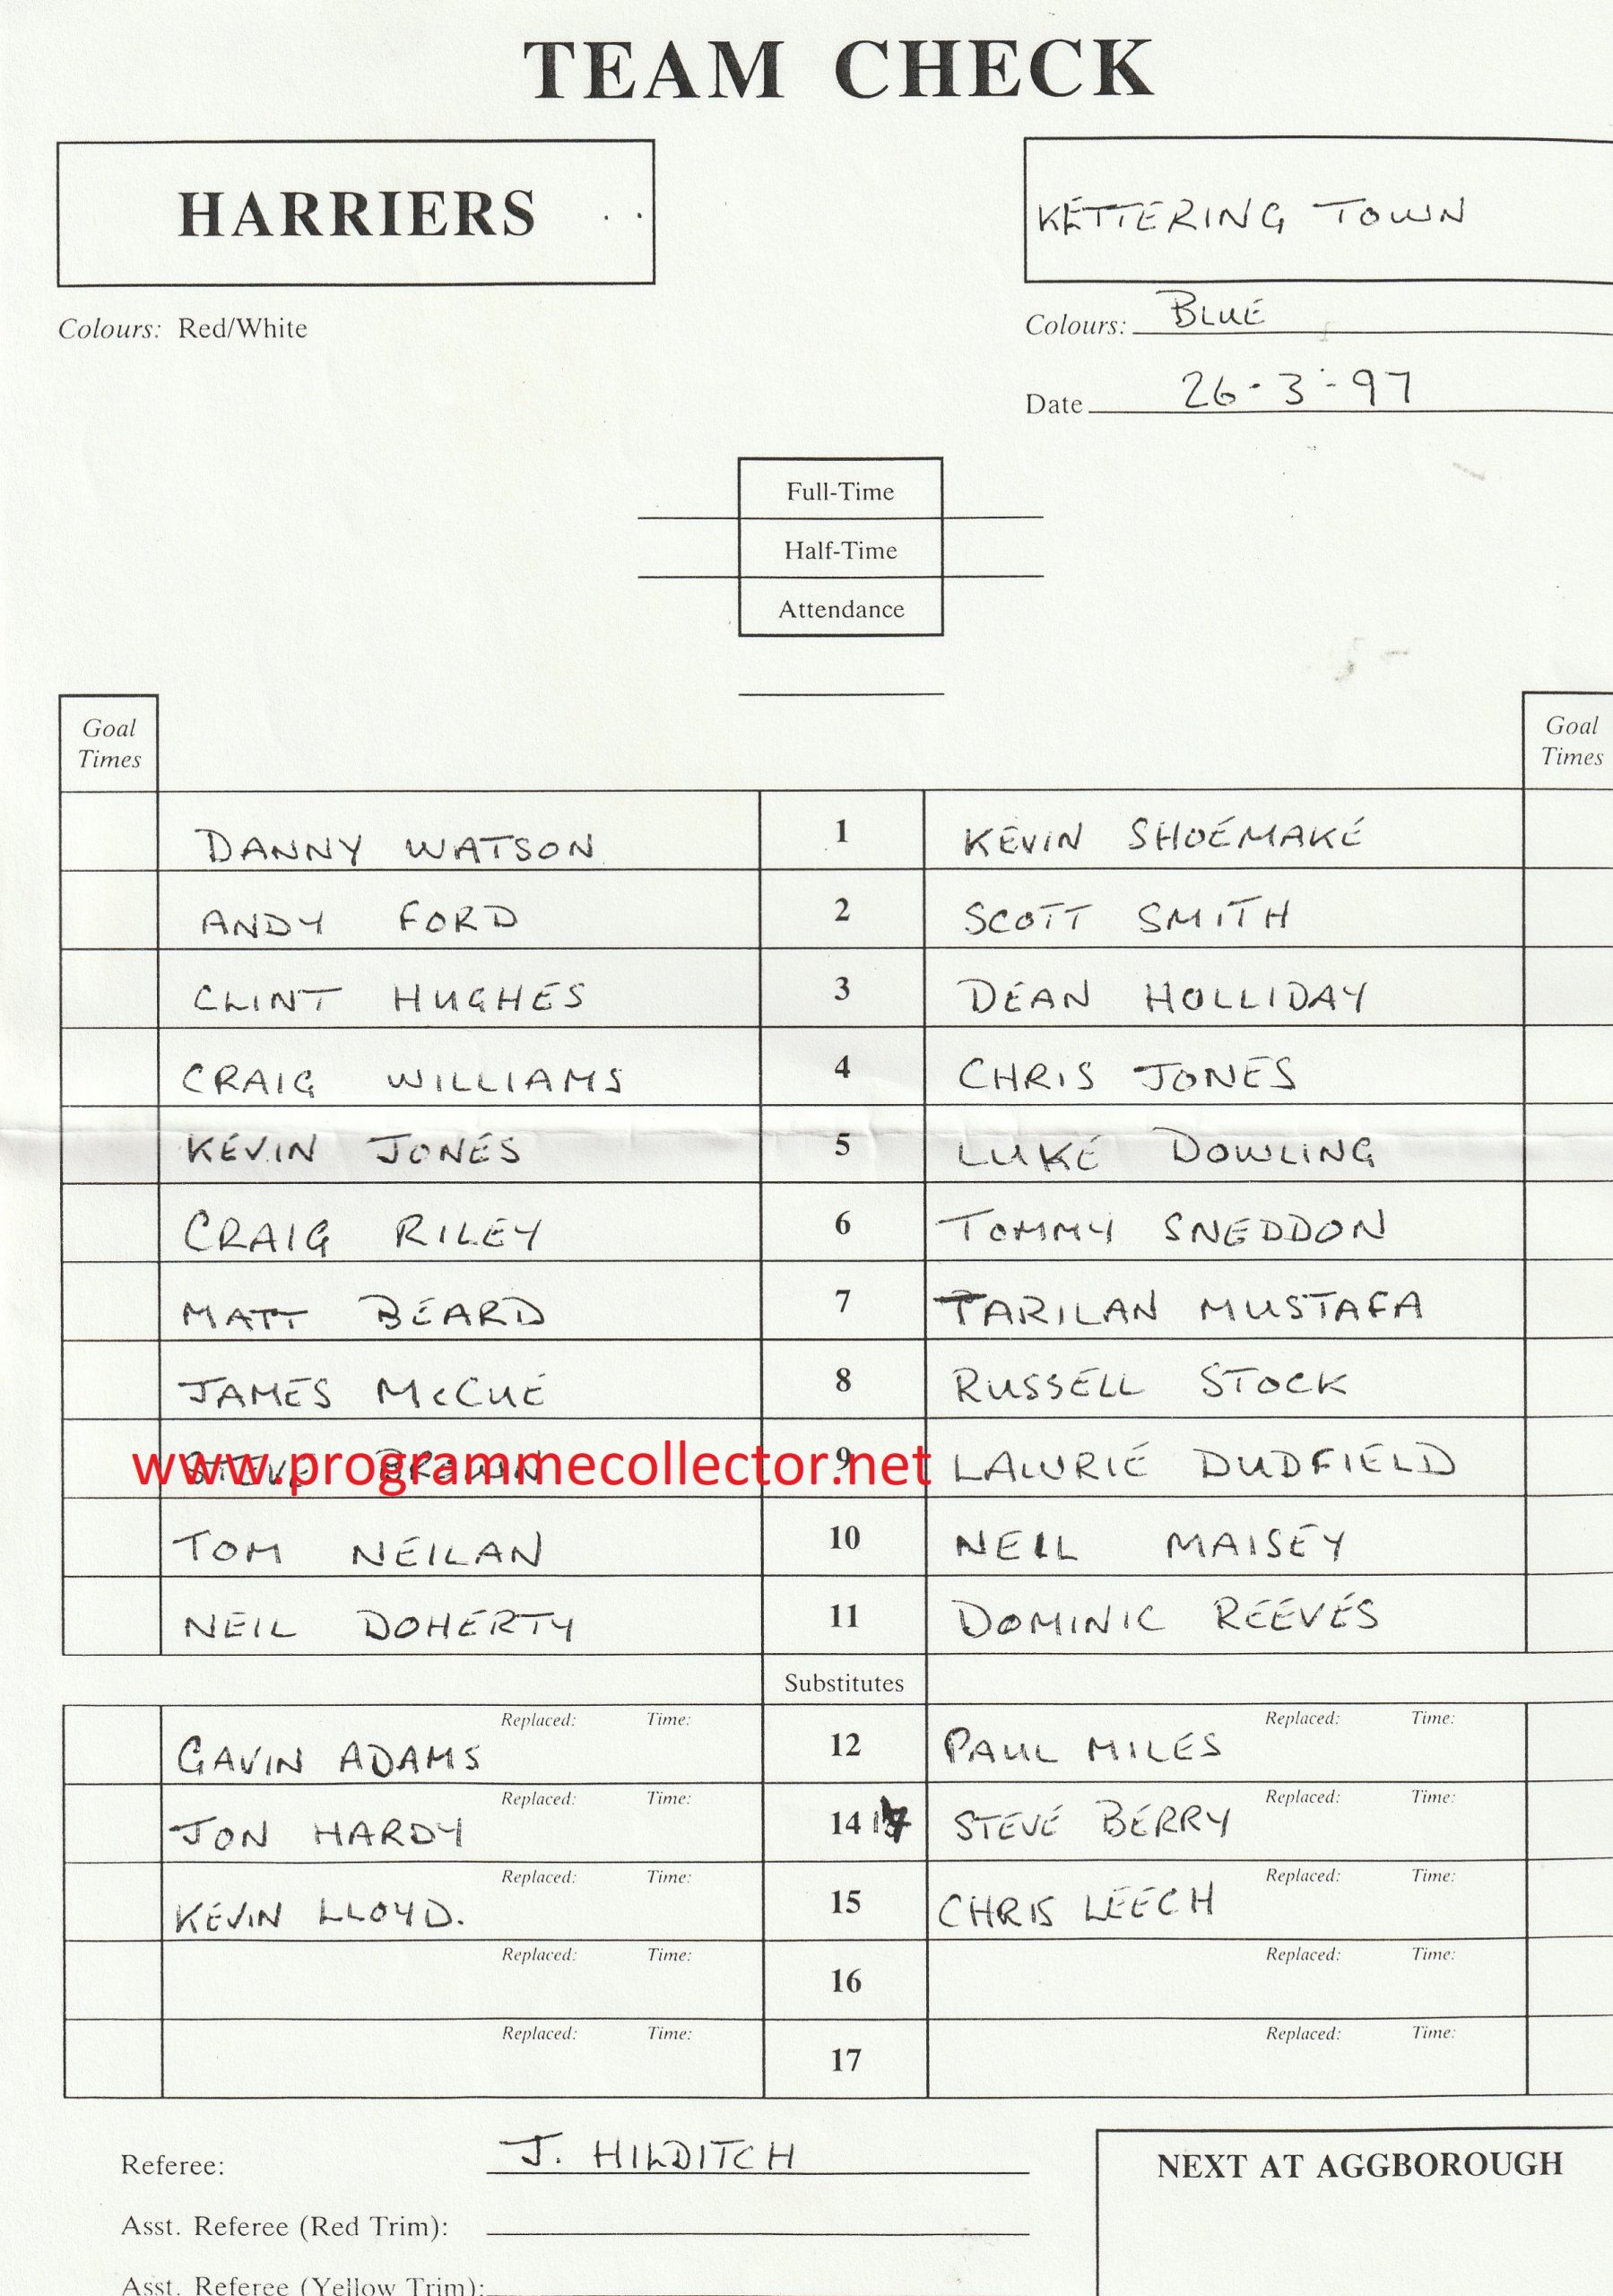 TEAM CHECK
HARRIERS
KETTERING TOWN
Colours: Red/White
Colours: BLUE
Date 26-3-97
Full-Time
Half-Time
Attendance
Goal Times
Goal Times
DANNY WATSON 1 KEVIN SHOEMAKE
ANDY FORD 2 SCOTT SMITH
CLINT HUGHES 3 DEAN HOLLIDAY
CRAIG WILLIAMS 4 CHRIS JONES
KEVIN JONES 5 LUKE DOWLING
CRAIG RILEY 6 TOMMY SNEDDON
MATT BEARD 7 TARILAN MUSTAFA
JAMES McCUE 8 RUSSELL STOCK
STEVE BROWN 9 LAWRIE DUDFIELD
www.programmecollector.net
TOM NEILAN 10 NEIL MAISEY
NEIL DOHERTY 11 DOMINIC REEVES
Substitutes
Replaced: Time: Replaced: Time:
GAVIN ADAMS 12 PAUL MILES
Replaced: Time: Replaced: Time:
JON HARDY 14 STEVE BERRY
Replaced: Time: Replaced: Time:
KEVIN LLOYD. 15 CHRIS LEECH
Replaced: Time: Replaced: Time:
16
Replaced: Time: Replaced: Time:
17
Referee: J. HILDITCH
NEXT AT AGGBOROUGH
Asst. Referee (Red Trim):
Asst. Referee (Yellow Trim):